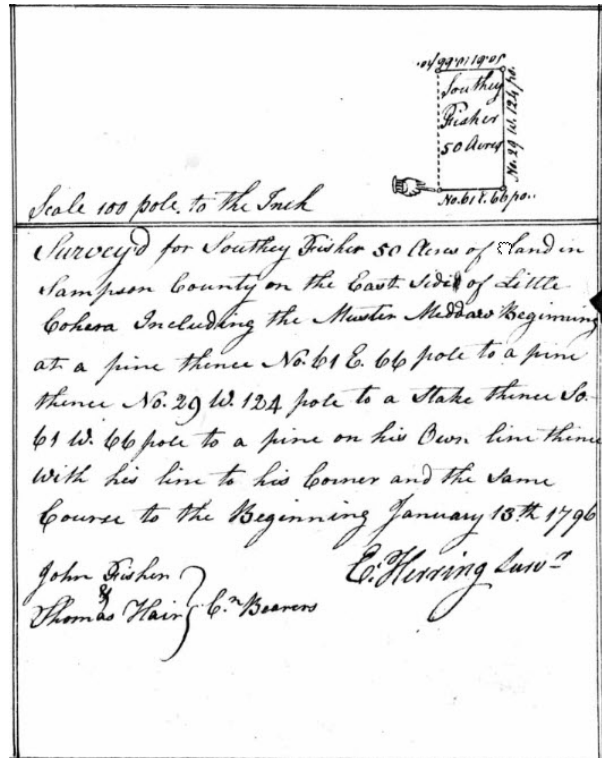 So. 61 W. 66 po.
Southey
Fisher
50 Acres
No. 29 W. 124 po.
No. 61 E. 66 po..
Scale 100 pole. to the Inch
Survey'd for Southey Fisher 50 Acres of Land in
Sampson County on the East Side of Little
Cohera Including the Muster Meddaw Beginning
at a pine thence No. 61 E. 66 pole to a pine
thence No. 29 W. 124 pole to a Stake thence So.
61 W. 66 pole to a pine on his Own line thence
With his line to his Corner and the Same
Course to the Beginning January 13th 1796
E. Herring Survr
John Fisher
&
Thomas Hair } Cn Bearers